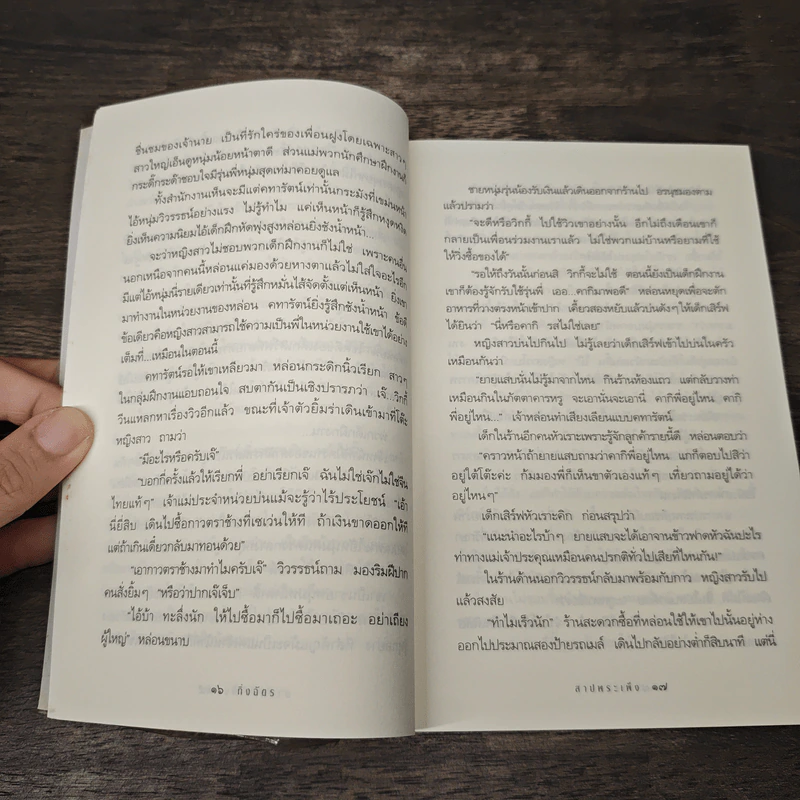 ชื่นชมของเจ้านาย เป็นที่รักใคร่ของเพื่อนฝูงโดยเฉพาะสาวๆ
สาวใหญ่เอ็นดูหนุ่มน้อยหน้าตาดี ส่วนแม่พวกนักศึกษาฝึกงานก็
กระดี๊กระด๊าชอบใจมีรุ่นพี่หนุ่มสุดเท่มาคอยดูแล
ทั้งสำนักงานเห็นจะมีแต่คทารัตน์เท่านั้นกระมังที่เขม่นหมั่น
ไอ้หนุ่มวิวรรธน์อย่างแรง ไม่รู้ทำไม แค่เห็นหน้าก็รู้สึกหงุดหงิด
ยิ่งเห็นความนิยมไอ้เด็กฝึกหัดพุ่งสูงหล่อนยิ่งชังน้ำหน้า...
จะว่าหญิงสาวไม่ชอบพวกเด็กฝึกงานก็ไม่ใช่ เพราะคนอื่น
นอกเหนือจากคนนี้หล่อนแค่มองด้วยหางตาแล้วไม่ใส่ใจอะไรอีก
มีแต่ไอ้หนุ่มนี่รายเดียวเท่านั้นที่รู้สึกหมั่นไส้จัดตั้งแต่เห็นหน้า ยิ่งเขา
มาทำงานในหน่วยงานของหล่อน คทารัตน์ยิ่งรู้สึกชังน้ำหน้า ข้อดี
ข้อเดียวคือหญิงสาวสามารถใช้ความเป็นพี่ในหน่วยงานใช้เขาได้อย่าง
เต็มที่...เหมือนในตอนนี้
คทารัตน์รอให้เขาเหลียวมา หล่อนกระดิกนิ้วเรียก สาวๆ
ในกลุ่มฝึกงานแอบถอนใจ สบตากันเป็นเชิงปรารภว่า เจ๊...วิกกี้
วีนแหลกหาเรื่องวิวอีกแล้ว ขณะที่เจ้าตัวยิ้มร่าเดินเข้ามาที่โต๊ะ
หญิงสาว ถามว่า
“มีอะไรหรือครับเจ๊”
“บอกกี่ครั้งแล้วให้เรียกพี่ อย่าเรียกเจ๊ ฉันไม่ใช่เจ๊กไม่ใช่จีน
ไทยแท้ๆ” เจ้าแม่ประจำหน่วยบ่นแม้จะรู้ว่าไร้ประโยชน์ “เอ้า
นี่ยี่สิบ เดินไปซื้อกาวตราช้างที่เซเว่นให้ที ถ้าเงินขาดออกให้ที
แต่ถ้าเกินเดี๋ยวกลับมาทอนด้วย”
“เอากาวตราช้างมาทำไมครับเจ๊” วิวรรธน์ถาม มองริมฝีปาก
คนสั่งยิ้มๆ “หรือว่าปากเจ๊เจ็บ”
“ไอ้บ้า ทะลึ่งนัก ให้ไปซื้อมาก็ไปซื้อมาเถอะ อย่าเถียง
ผู้ใหญ่” หล่อนขนาบ
๑๖ กิ่งฉัตร
ชายหนุ่มรุ่นน้องรับเงินแล้วเดินออกจากร้านไป อรนุชมองตาม
แล้วปรามว่า
“จะดีหรือวิกกี้ ไปใช้วิวเขาอย่างนั้น อีกไม่ถึงเดือนเขาก็
กลายเป็นเพื่อนร่วมงานเราแล้ว ไม่ใช่พวกแม่บ้านหรือยามที่ใช้
ให้วิ่งซื้อของได้”
“รอให้ถึงวันนั้นก่อนสิ วิกกี้จะไม่ใช้ ตอนนี้ยังเป็นเด็กฝึกงาน
เขาก็ต้องรู้จักรับใช้รุ่นพี่ เออ...คากิมาพอดี” หล่อนหยุดเพื่อจะตัก
อาหารที่วางตรงหน้าเข้าปาก เคี้ยวสองหยับแล้วบ่นดังๆให้เด็กเสิร์ฟ
ได้ยินว่า “นี่หรือคากิ รสไม่ใช่เลย”
หญิงสาวบ่นไปกินไป ไม่รู้เลยว่าเด็กเสิร์ฟเข้าไปบ่นในครัว
เหมือนกันว่า
“ยายแสบนั่นไม่รู้มาจากไหน กินร้านห้องแถว แต่กลับวางท่า
เหมือนกินในภัตตาคารหรู จะเอานั่นจะเอานี่ คากิพี่อยู่ไหน คากิ
พี่อยู่ไหน...” เจ้าหล่อนทำเสียงเลียนแบบคทารัตน์
เด็กในร้านอีกคนหัวเราะเพราะรู้จักลูกค้ารายนี้ดี หล่อนตอบว่า
“คราวหน้าถ้ายายแสบถามว่าคากิพี่อยู่ไหน แกก็ตอบไปสิว่า
อยู่ใต้โต๊ะค่ะ ก้มมองพี่ก็เห็นขาตัวเองแท้ๆ เที่ยวถามอยู่ได้ว่า
อยู่ไหนๆ”
เด็กเสิร์ฟหัวเราะคิก ก่อนสรุปว่า
“แนะนำอะไรบ้าๆ ยายแสบจะได้เอาจานข้าวฟาดหัวฉันปะไร
ท่าทางแม่เจ้าประคุณเหมือนคนปรกติทั่วไปเสียที่ไหนกัน!”
ในร้านด้านนอกวิวรรธน์กลับมาพร้อมกับกาว หญิงสาวรับไป
แล้วสงสัย
“ทำไมเร็วนัก” ร้านสะดวกซื้อที่หล่อนใช้ให้เขาไปนั้นอยู่ห่าง
ออกไปประมาณสองป้ายรถเมล์ เดินไปกลับอย่างต่ำก็สิบนาที แต่นี่
สาปพระเพ็ง ๑๗